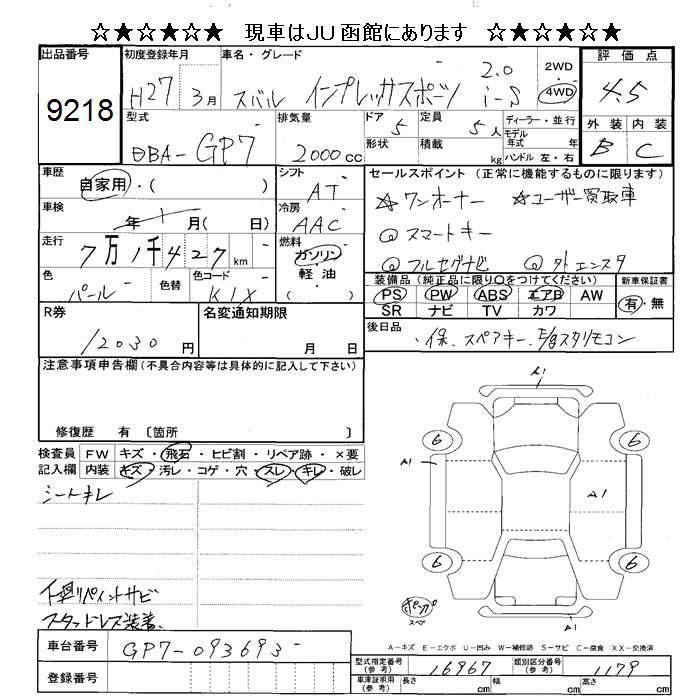 ☆★☆★☆★ 現車はJU函館にあります ☆★☆★☆★
出品番号 初度登録年月 車名・グレード 2WD 評価点
9218 H27 3月 スバル インプレッサスポーツ 2.0 i-S 4WD 4.5
型式 排気量 ドア 5 定員 5人 ディーラー・並行 外装 内装
DBA-GP7 2000cc 形状 積載 kg モデル年式 年 B C
ハンドル 左・右
車歴 シフト セールスポイント (正常に機能するものに限ります)
自家用・( ) AT ☆ワンオーナー ☆ユーザー買取車
車検 年 月( 日) 冷房 AAC ◎スマートキー
走行 7万1千427km 燃料 ガソリン・軽油・( ) ◎フルセグナビ
色 色替 色コード 装備品(純正品に限り○をつけてください) 新車保証書
パール K1X PS PW ABS エアB AW 有・無
SR ナビ TV カワ
R券 名変通知期限 後日品
12030円 月 日 ・保、スペアキー、E/gスタリモコン
注意事項申告欄(不具合内容等は具体的に記入して下さい)
修復歴 有 〔箇所 〕
検査員記入欄 FW キズ・飛石・ヒビ割・リペア跡・×要
内装 キズ・汚レ・コゲ・穴・スレ・キレ・破レ
シートキレ
A1
6 6
A1 A1
6 6
スペア
A1
下廻リペイントサビ
スタッドレス装着、
A-キズ E-エクボ U-凹み W-補修跡 S-サビ C-腐食 XX-交換済
車台番号 GP7-093693
型式指定番号(参考) 16967 類別区分番号(参考) 1179
登録番号 車庫証明用(参考) 長さ cm 幅 cm 高さ cm